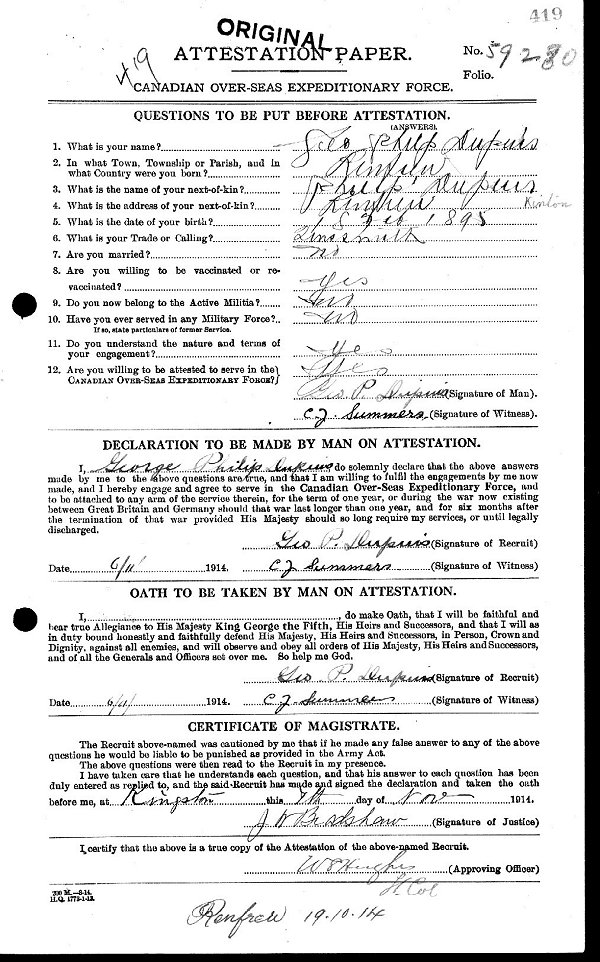 419
ORIGINAL
ATTESTATION PAPER.
No. 59280
Folio.
419
CANADIAN OVER-SEAS EXPEDITIONARY FORCE.
QUESTIONS TO BE PUT BEFORE ATTESTATION.
(ANSWERS).
1. What is your name? Geo Philip Dupuis
2. In what Town, Township or Parish, and in
what Country were you born? Renfrew
3. What is the name of your next-of-kin? Philip Dupuis
4. What is the address of your next-of-kin? Renfrew
5. What is the date of your birth? Feb 1895
6. What is your Trade or Calling? Tinsmith
7. Are you married? no
8. Are you willing to be vaccinated or re-
vaccinated? Yes
9. Do you now belong to the Active Militia? no
10. Have you ever served in any Military Force? no
If so, state particulars of former Service.
11. Do you understand the nature and terms of
your engagement? Yes
12. Are you willing to be attested to serve in the
CANADIAN OVER-SEAS EXPEDITIONARY FORCE? Yes
Geo P. Dupuis (Signature of Man).
C J Summers (Signature of Witness).
DECLARATION TO BE MADE BY MAN ON ATTESTATION.
I, George Philip Dupuis do solemnly declare that the above answers
made by me to the above questions are true, and that I am willing to fulfil the engagements by me now
made, and I hereby engage and agree to serve in the Canadian Over-Seas Expeditionary Force, and
to be attached to any arm of the service therein, for the term of one year, or during the war now existing
between Great Britain and Germany should that war last longer than one year, and for six months after
the termination of that war provided His Majesty should so long require my services, or until legally
discharged.
Geo P. Dupuis (Signature of Recruit)
Date 6/11 1914. C J Summers (Signature of Witness)
OATH TO BE TAKEN BY MAN ON ATTESTATION.
I, , do make Oath, that I will be faithful and
bear true Allegiance to His Majesty King George the Fifth, His Heirs and Successors, and that I will as
in duty bound honestly and faithfully defend His Majesty, His Heirs and Successors, in Person, Crown and
Dignity, against all enemies, and will observe and obey all orders of His Majesty, His Heirs and Successors,
and of all the Generals and Officers set over me. So help me God.
Geo P. Dupuis (Signature of Recruit)
Date 6/11/ 1914. C J Summers (Signature of Witness)
CERTIFICATE OF MAGISTRATE.
The Recruit above-named was cautioned by me that if he made any false answer to any of the above
questions he would be liable to be punished as provided in the Army Act.
The above questions were then read to the Recruit in my presence.
I have taken care that he understands each question, and that his answer to each question has been
duly entered as replied to, and the said Recruit has made and signed the declaration and taken the oath
before me, at Kingston this 7th day of Nov 1914.
J W Bradshaw (Signature of Justice)
I certify that the above is a true copy of the Attestation of the above-named Recruit.
W S Hughes (Approving Officer)
Lt Col
200 M.—8-14.
H.Q. 1772-1-13.
Renfrew 19.10.14